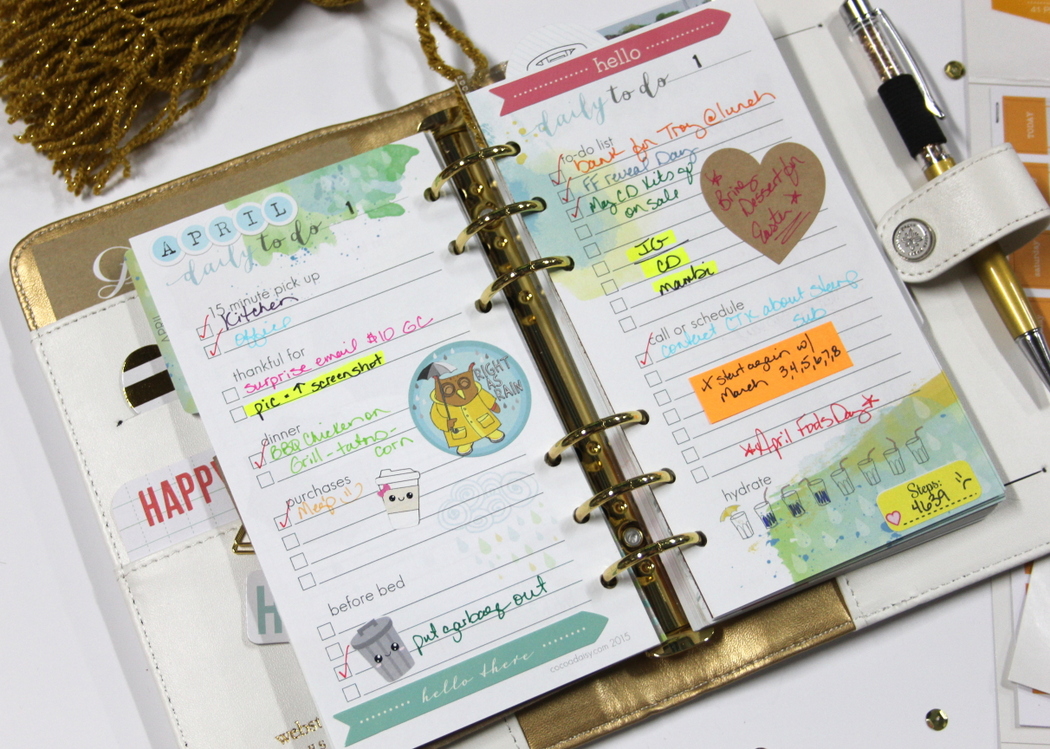 APRIL
1
daily to do
15 minute pick up
Kitchen
office
thankful for
surprise email $10 GC
pic - ↑ screenshot
RIGHT
AS
RAIN
dinner
BBQ Chicken on
Grill - taters -
corn
purchases
before bed
put garbage out
hello there
cocoadaisy.com 2015
HAPPY
H
hello
daily to do
1
to-do list
bank for Troy @ lunch
FF reveal Day
May CD Kits go
on sale
IG
CD
mambi
Bring
Dessert for
Easter
call or schedule
contact CTX about sleep
sub
* start again w/
March 3,4,5,6,7,8
*April Fools Day*
hydrate
Steps:
4639
TODAY